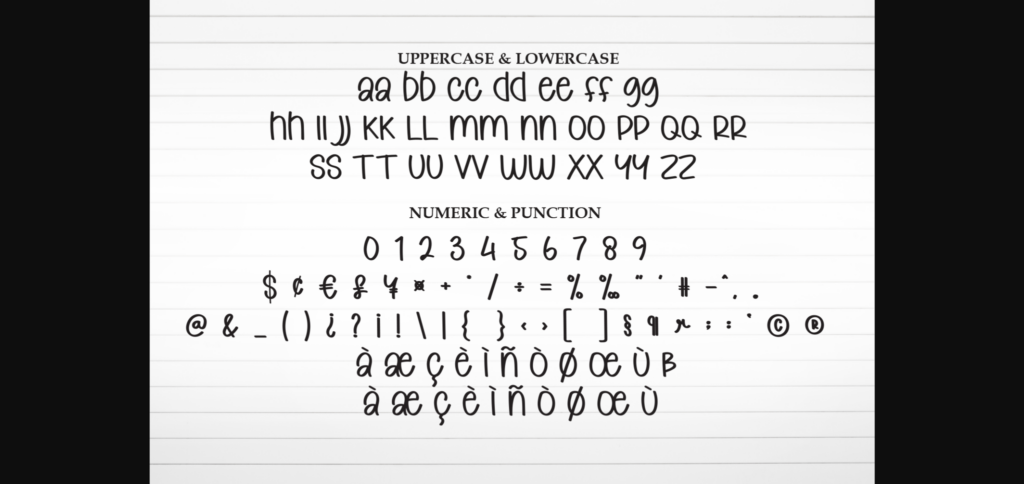 UPPERCASE & LOWERCASE
aa bb cc dd ee ff gg
hh II JJ KK LL mm nn OO PP QQ RR
SS TT UU VV WW XX YY ZZ
NUMERIC & PUNCTION
0 1 2 3 4 5 6 7 8 9
$ ¢ € £ ¥ ¤ + ˙ / ÷ = % ‰ " ' # - ˆ , .
@ & _ ( ) ¿ ? ¡ ! \ | { } ‹ › [ ] § ¶ ; : ' © ®
à æ ç è ì ñ ò ø œ ù ß
à æ ç è ì ñ ò ø œ ù